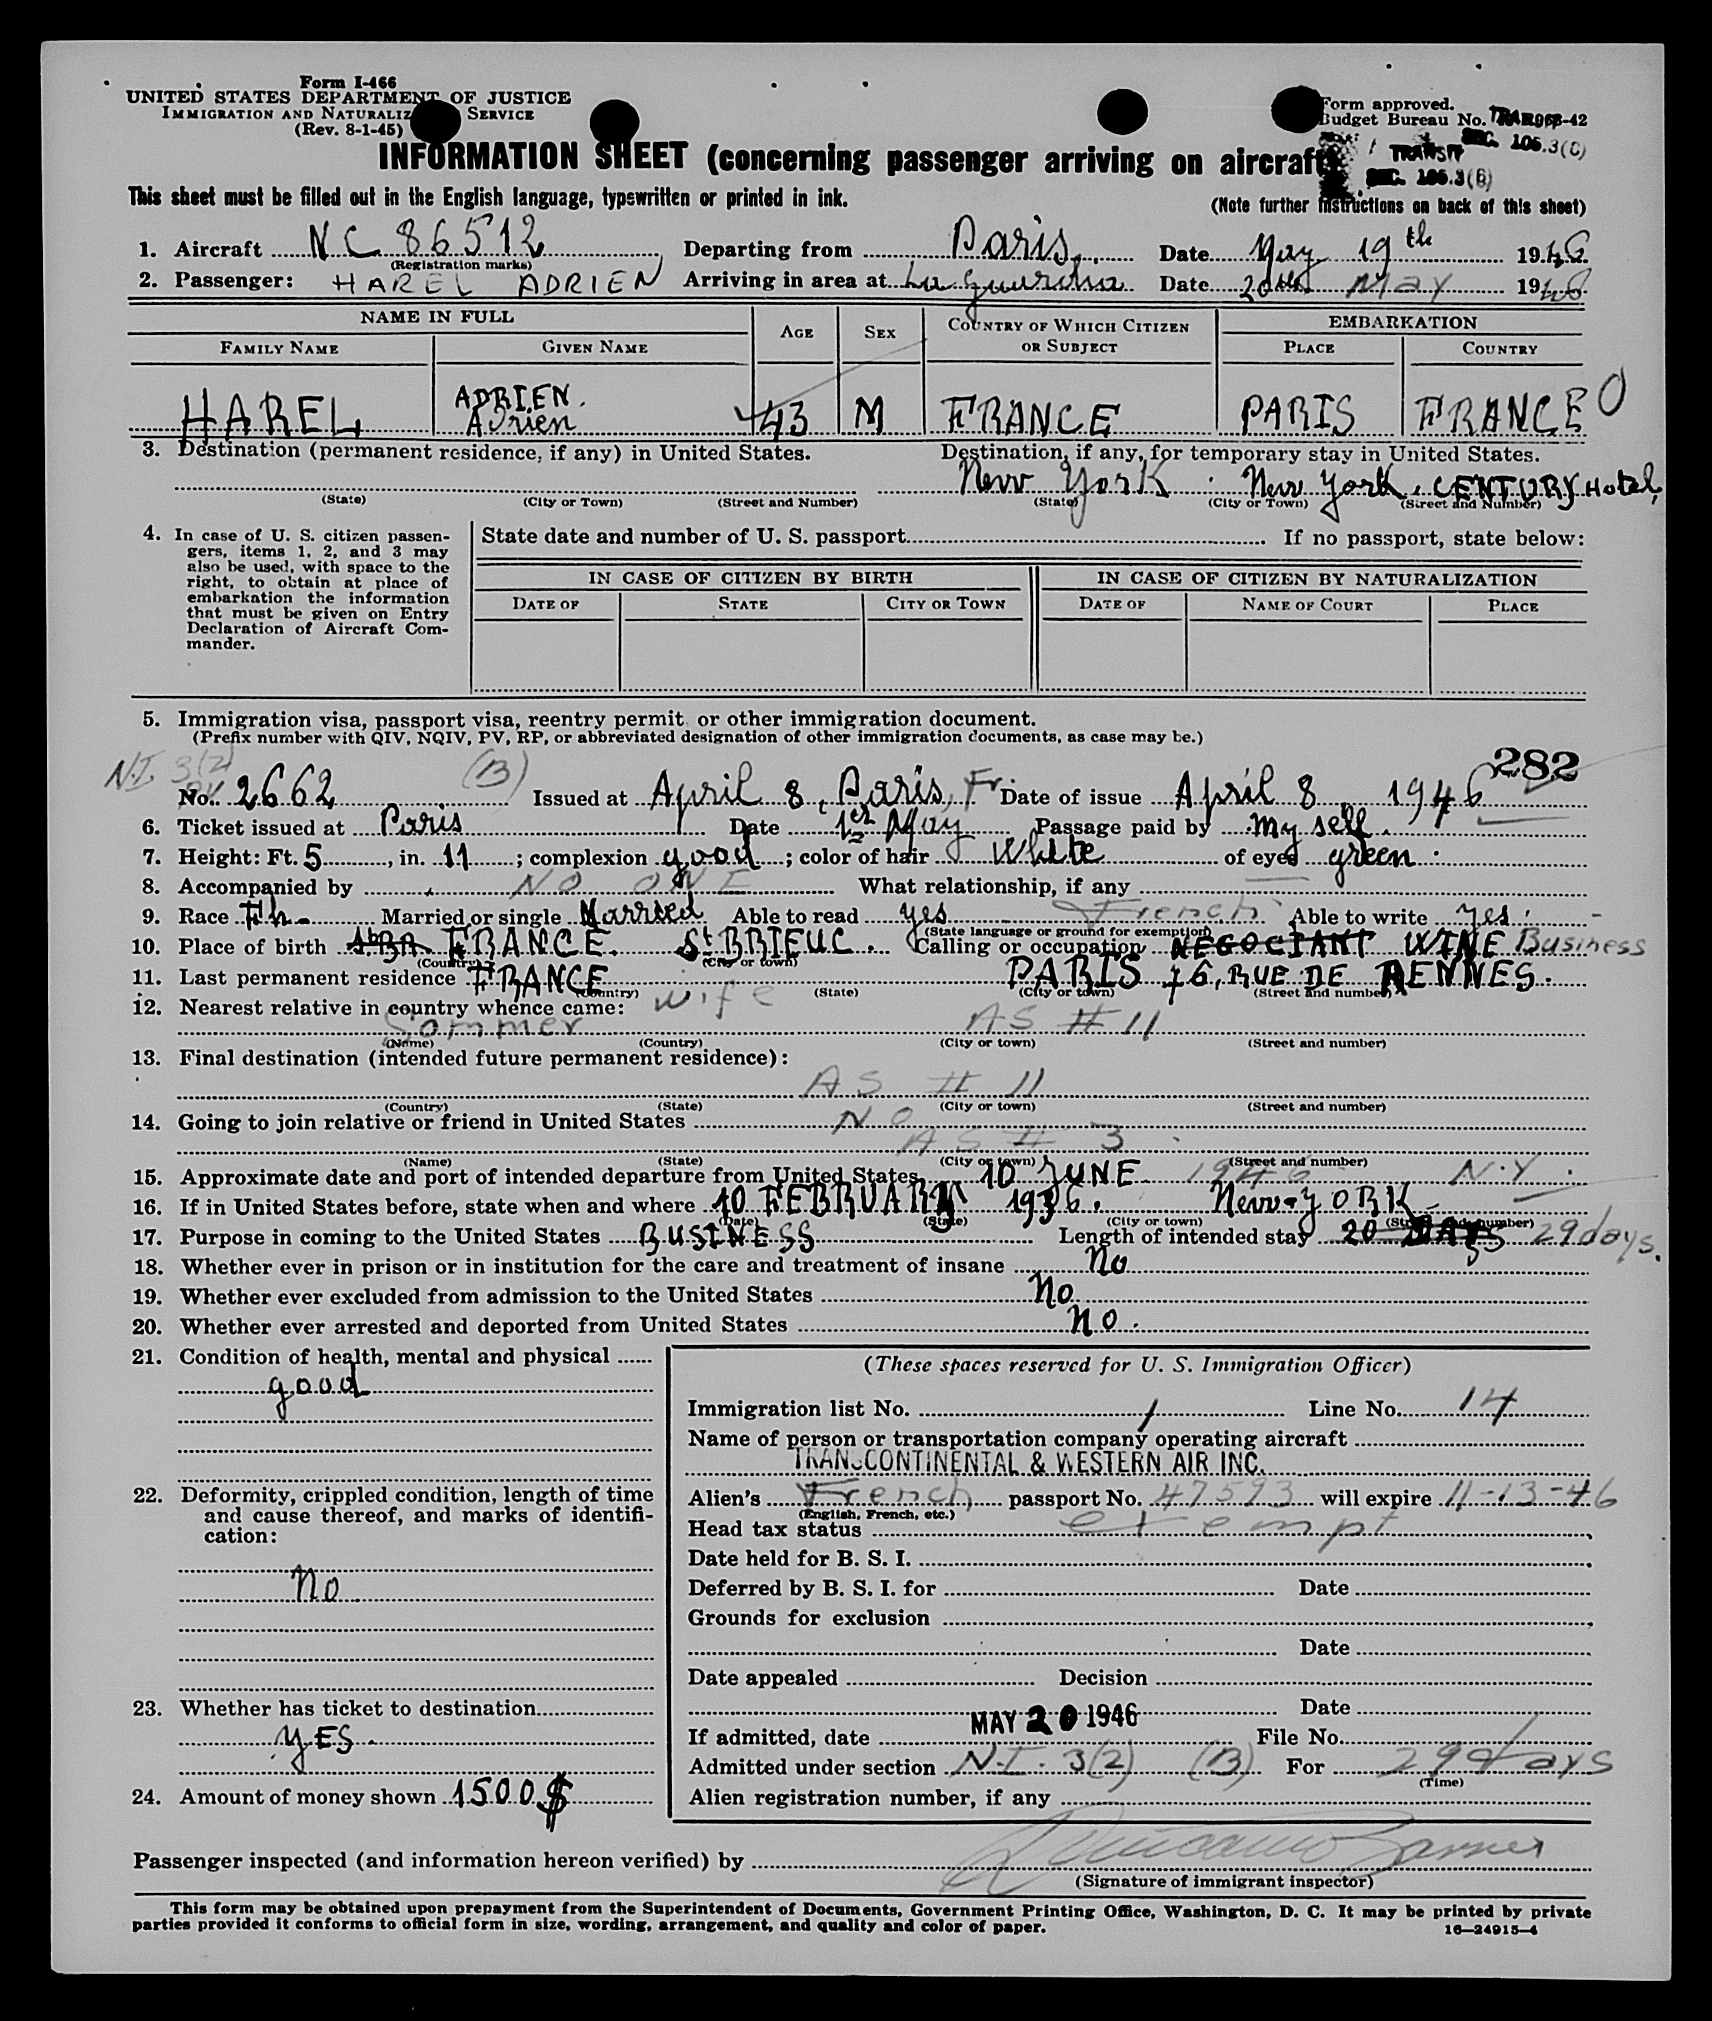 Form I-466
UNITED STATES DEPARTMENT OF JUSTICE
IMMIGRATION AND NATURALIZ SERVICE
(Rev. 8-1-45)
Form approved.
Budget Bureau No. -42
SEC. 105.3(C)
TRANSIT
SEC. 105.3(B)
INFORMATION SHEET (concerning passenger arriving on aircraft)
This sheet must be filled out in the English language, typewritten or printed in ink.
(Note further instructions on back of this sheet)
1. Aircraft NC 86512 Departing from Paris Date May 19th 1946
(Registration marks)
2. Passenger: HAREL ADRIEN Arriving in area at La Guardia Date 20th May 1946
NAME IN FULL AGE SEX COUNTRY OF WHICH CITIZEN OR SUBJECT EMBARKATION
FAMILY NAME GIVEN NAME PLACE COUNTRY
ADRIEN.
HAREL Adrien 43 M FRANCE PARIS FRANCE O
3. Destination (permanent residence, if any) in United States. Destination, if any, for temporary stay in United States.
New York New York. CENTURY Hotel,
(State) (City or Town) (Street and Number) (State) (City or Town) (Street and Number)
4. In case of U. S. citizen passengers, items 1, 2, and 3 may also be used, with space to the right, to obtain at place of embarkation the information that must be given on Entry Declaration of Aircraft Commander.
State date and number of U. S. passport If no passport, state below:
IN CASE OF CITIZEN BY BIRTH IN CASE OF CITIZEN BY NATURALIZATION
DATE OF STATE CITY OR TOWN DATE OF NAME OF COURT PLACE
5. Immigration visa, passport visa, reentry permit or other immigration document.
(Prefix number with QIV, NQIV, PV, RP, or abbreviated designation of other immigration documents, as case may be.)
N.I. 3(2) (B) 282
PV
No. 2662 Issued at April 8, Paris, Fr. Date of issue April 8 1946
6. Ticket issued at Paris Date 1er May Passage paid by my self.
7. Height: Ft. 5, in. 11; complexion good; color of hair White of eyes green.
8. Accompanied by NO ONE What relationship, if any
9. Race Fh. Married or single Married Able to read yes French Able to write yes.
(State language or ground for exemption)
10. Place of birth FRANCE. St BRIEUC. Calling or occupation NEGOCIANT WINE Business
(Country) (City or town)
11. Last permanent residence FRANCE PARIS 76, RUE DE RENNES.
(Country) (State) (City or town) (Street and number)
12. Nearest relative in country whence came: wife
Sommer AS # 11
(Name) (Country) (City or town) (Street and number)
13. Final destination (intended future permanent residence):
AS # 11
(Country) (State) (City or town) (Street and number)
14. Going to join relative or friend in United States NO
AS # 3
(Name) (State) (City or town) (Street and number)
15. Approximate date and port of intended departure from United States 10 JUNE 1946 N.Y.
16. If in United States before, state when and where 10 FEBRUARY 1936. New-YORK
(Date) (State) (City or town) (Street and number)
17. Purpose in coming to the United States BUSINESS Length of intended stay 20 DAYS 29 days.
18. Whether ever in prison or in institution for the care and treatment of insane No
19. Whether ever excluded from admission to the United States No
20. Whether ever arrested and deported from United States No.
21. Condition of health, mental and physical
good
22. Deformity, crippled condition, length of time and cause thereof, and marks of identification:
No
23. Whether has ticket to destination
YES.
24. Amount of money shown 1500 $
(These spaces reserved for U. S. Immigration Officer)
Immigration list No. 1 Line No. 14
Name of person or transportation company operating aircraft
TRANSCONTINENTAL & WESTERN AIR INC.
Alien's French passport No. 47593 will expire 11-13-46
(English, French, etc.)
Head tax status exempt
Date held for B. S. I.
Deferred by B. S. I. for Date
Grounds for exclusion
Date
Date appealed Decision
Date
If admitted, date MAY 20 1946 File No.
Admitted under section N.I. 3(2) (B) For 29 days
(Time)
Alien registration number, if any
Passenger inspected (and information hereon verified) by
(Signature of immigrant inspector)
This form may be obtained upon prepayment from the Superintendent of Documents, Government Printing Office, Washington, D. C. It may be printed by private
parties provided it conforms to official form in size, wording, arrangement, and quality and color of paper.
16—24915-4